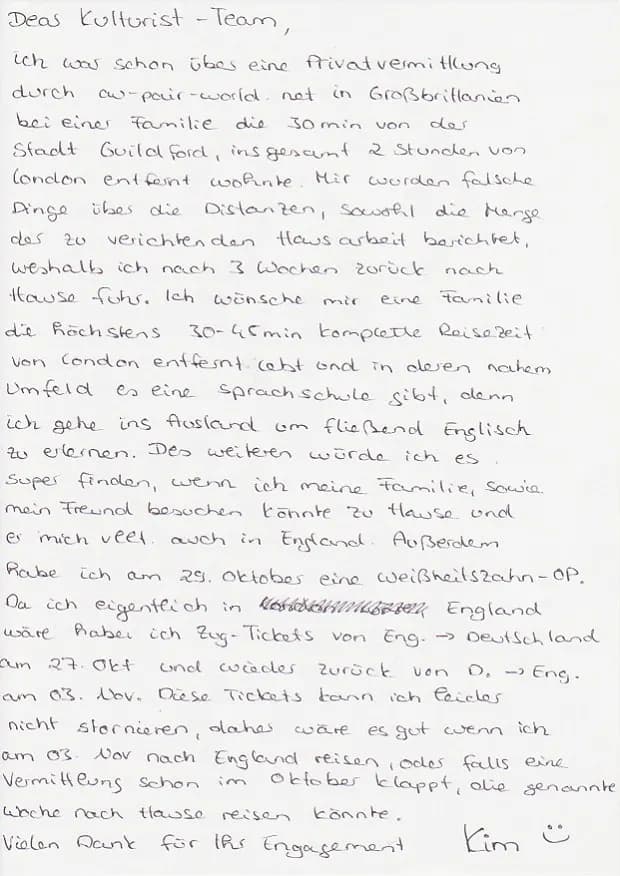 Dear Kulturist-Team,
ich war schon über eine Privatvermittlung
durch aw-pair-world.net in Großbrittanien
bei einer Familie die 30min von der
Stadt Guildford, insgesamt 2 Stunden von
London entfernt wohnte. Mir wurden falsche
Dinge über die Distanzen, sowohl die Menge
der zu verichtenden Hausarbeit berichtet,
weshalb ich nach 3 Wochen zurück nach
Hause fuhr. Ich wünsche mir eine Familie
die höchstens 30-45min komplette Reisezeit
von London entfernt lebt und in deren nahem
Umfeld es eine Sprachschule gibt, denn
ich gehe ins Ausland um fließend Englisch
zu erlernen. Des weiteren würde ich es
super finden, wenn ich meine Familie, sowie
mein Freund besuchen könnte zu Hause und
er mich vllt. auch in England. Außerdem
habe ich am 29. Oktober eine Weißheitszahn-OP.
Da ich eigentlich in England
wäre habe ich Zug-Tickets von Eng. → Deutschland
am 27. Okt und wieder zurück von D. → Eng.
am 03. Nov. Diese Tickets kann ich leider
nicht stornieren, daher wäre es gut wenn ich
am 03. Nov nach England reisen, oder falls eine
Vermittlung schon im Oktober klappt, die genannte
Woche nach Hause reisen könnte.
Vielen Dank für Ihr Engagement Kim